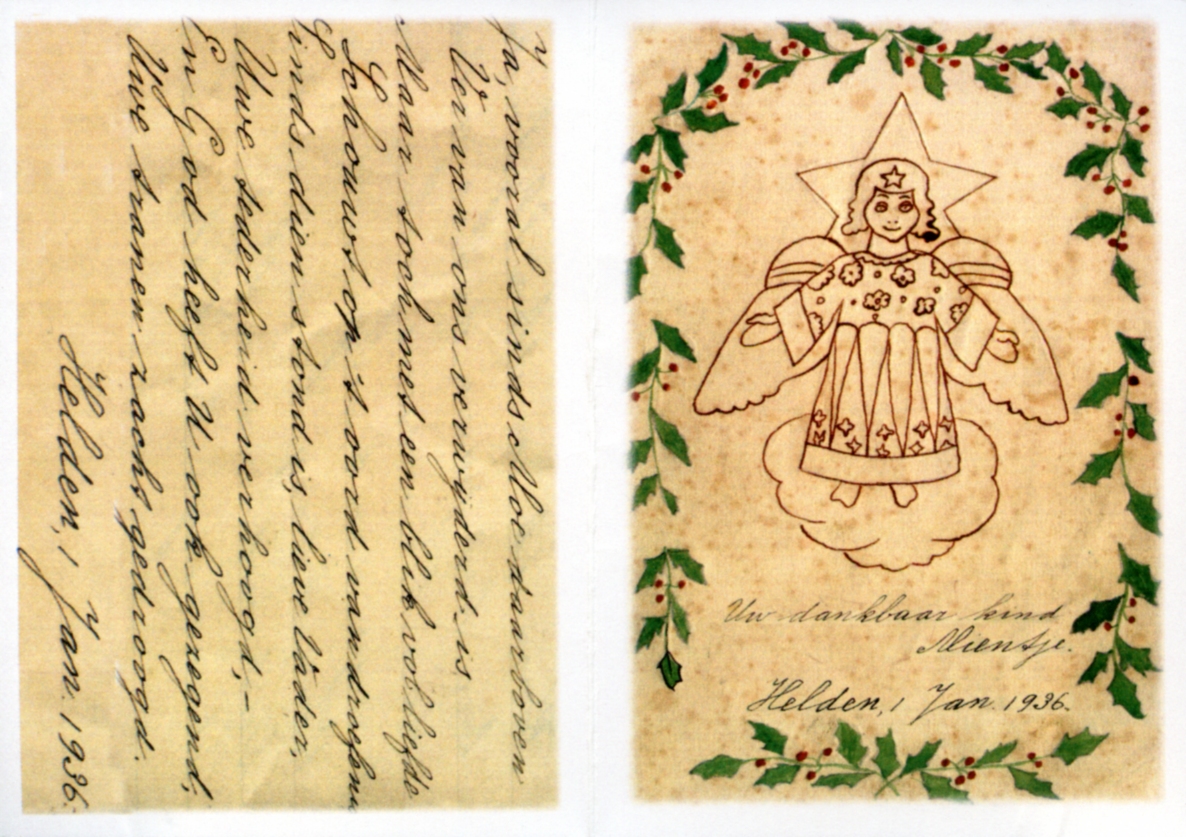 Ja, vooral sinds Moe daarboven
Ver van ons verwijderd is
Maar toch met een blik vol liefde
Schouwt op 't oord van droefeni
Sinds dien stond is, lieve Vader,
Uwe tederheid verhoogd,-
En God heeft U ook gezegend,
Uwe tranen zacht gedroogd.
Helden, 1 Jan. 1936.
Uw dankbaar kind
Mientje.
Helden, 1 Jan. 1936.